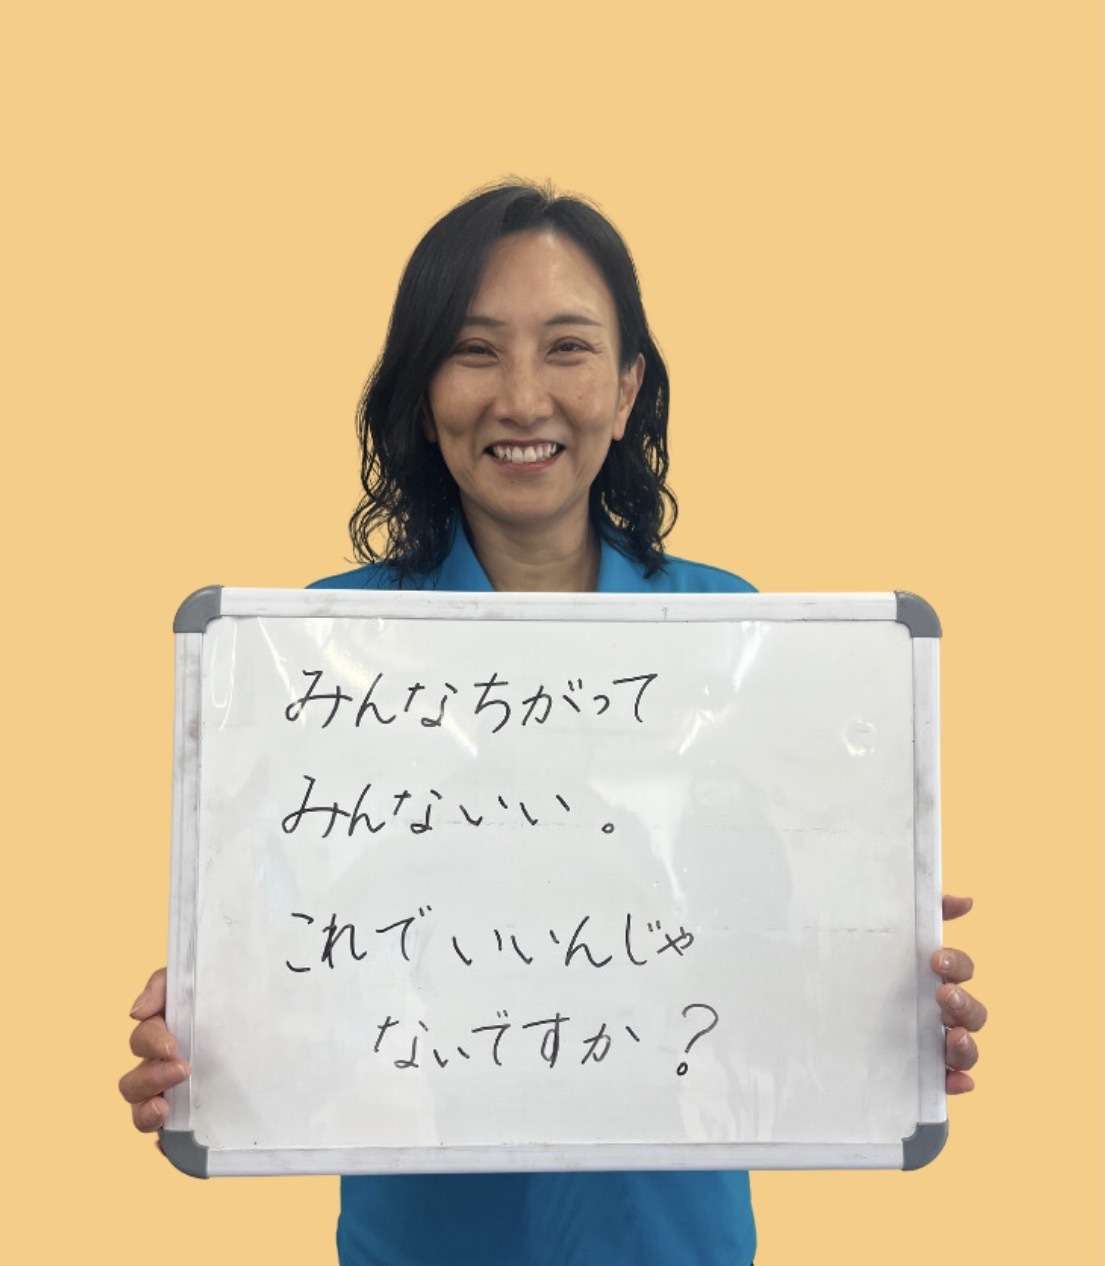 みんなちがって
みんないい。
これでいいんじゃ
ないですか?